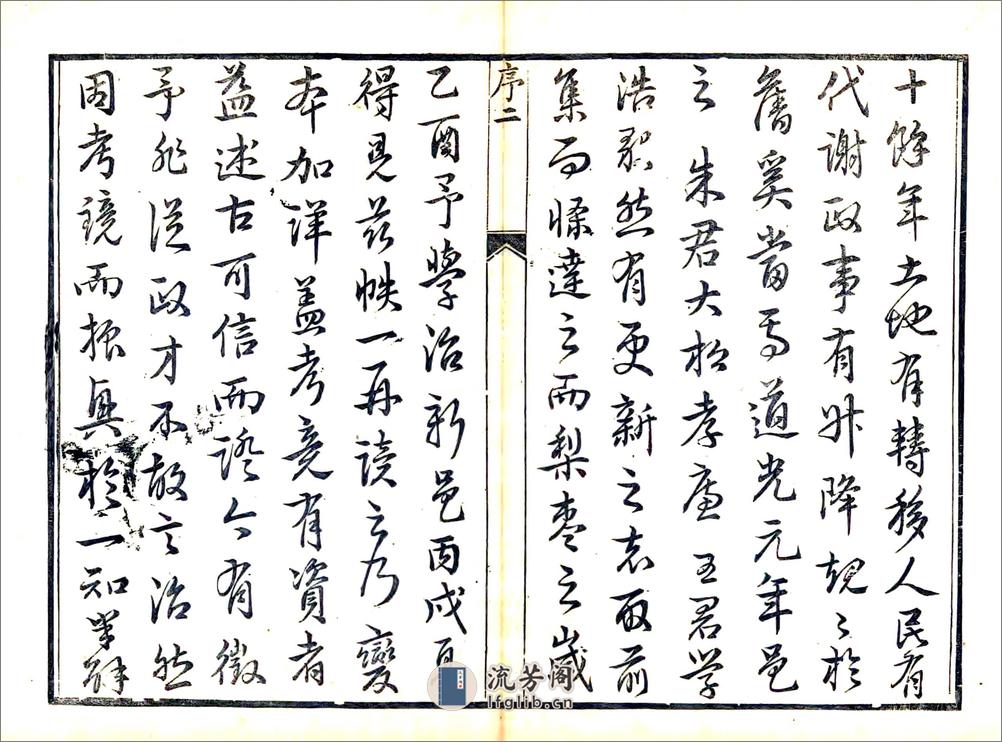 十餘年土地有轉移人民有
代謝政事有升降規〻於
舊奚當焉道光元年邑
之朱君大松孝廉王君學
浩毅然有更新之志取前
集而條達之而梨棗之歲
序二
乙酉予學治新邑丙戌夏
得見茲帙一再讀之乃爕
本加詳蓋考竟有資者
益述古可信而證今有徵
予非從政才不敢言治然
因考鏡而振興於一知半解
流芳阁
lfglib.cn